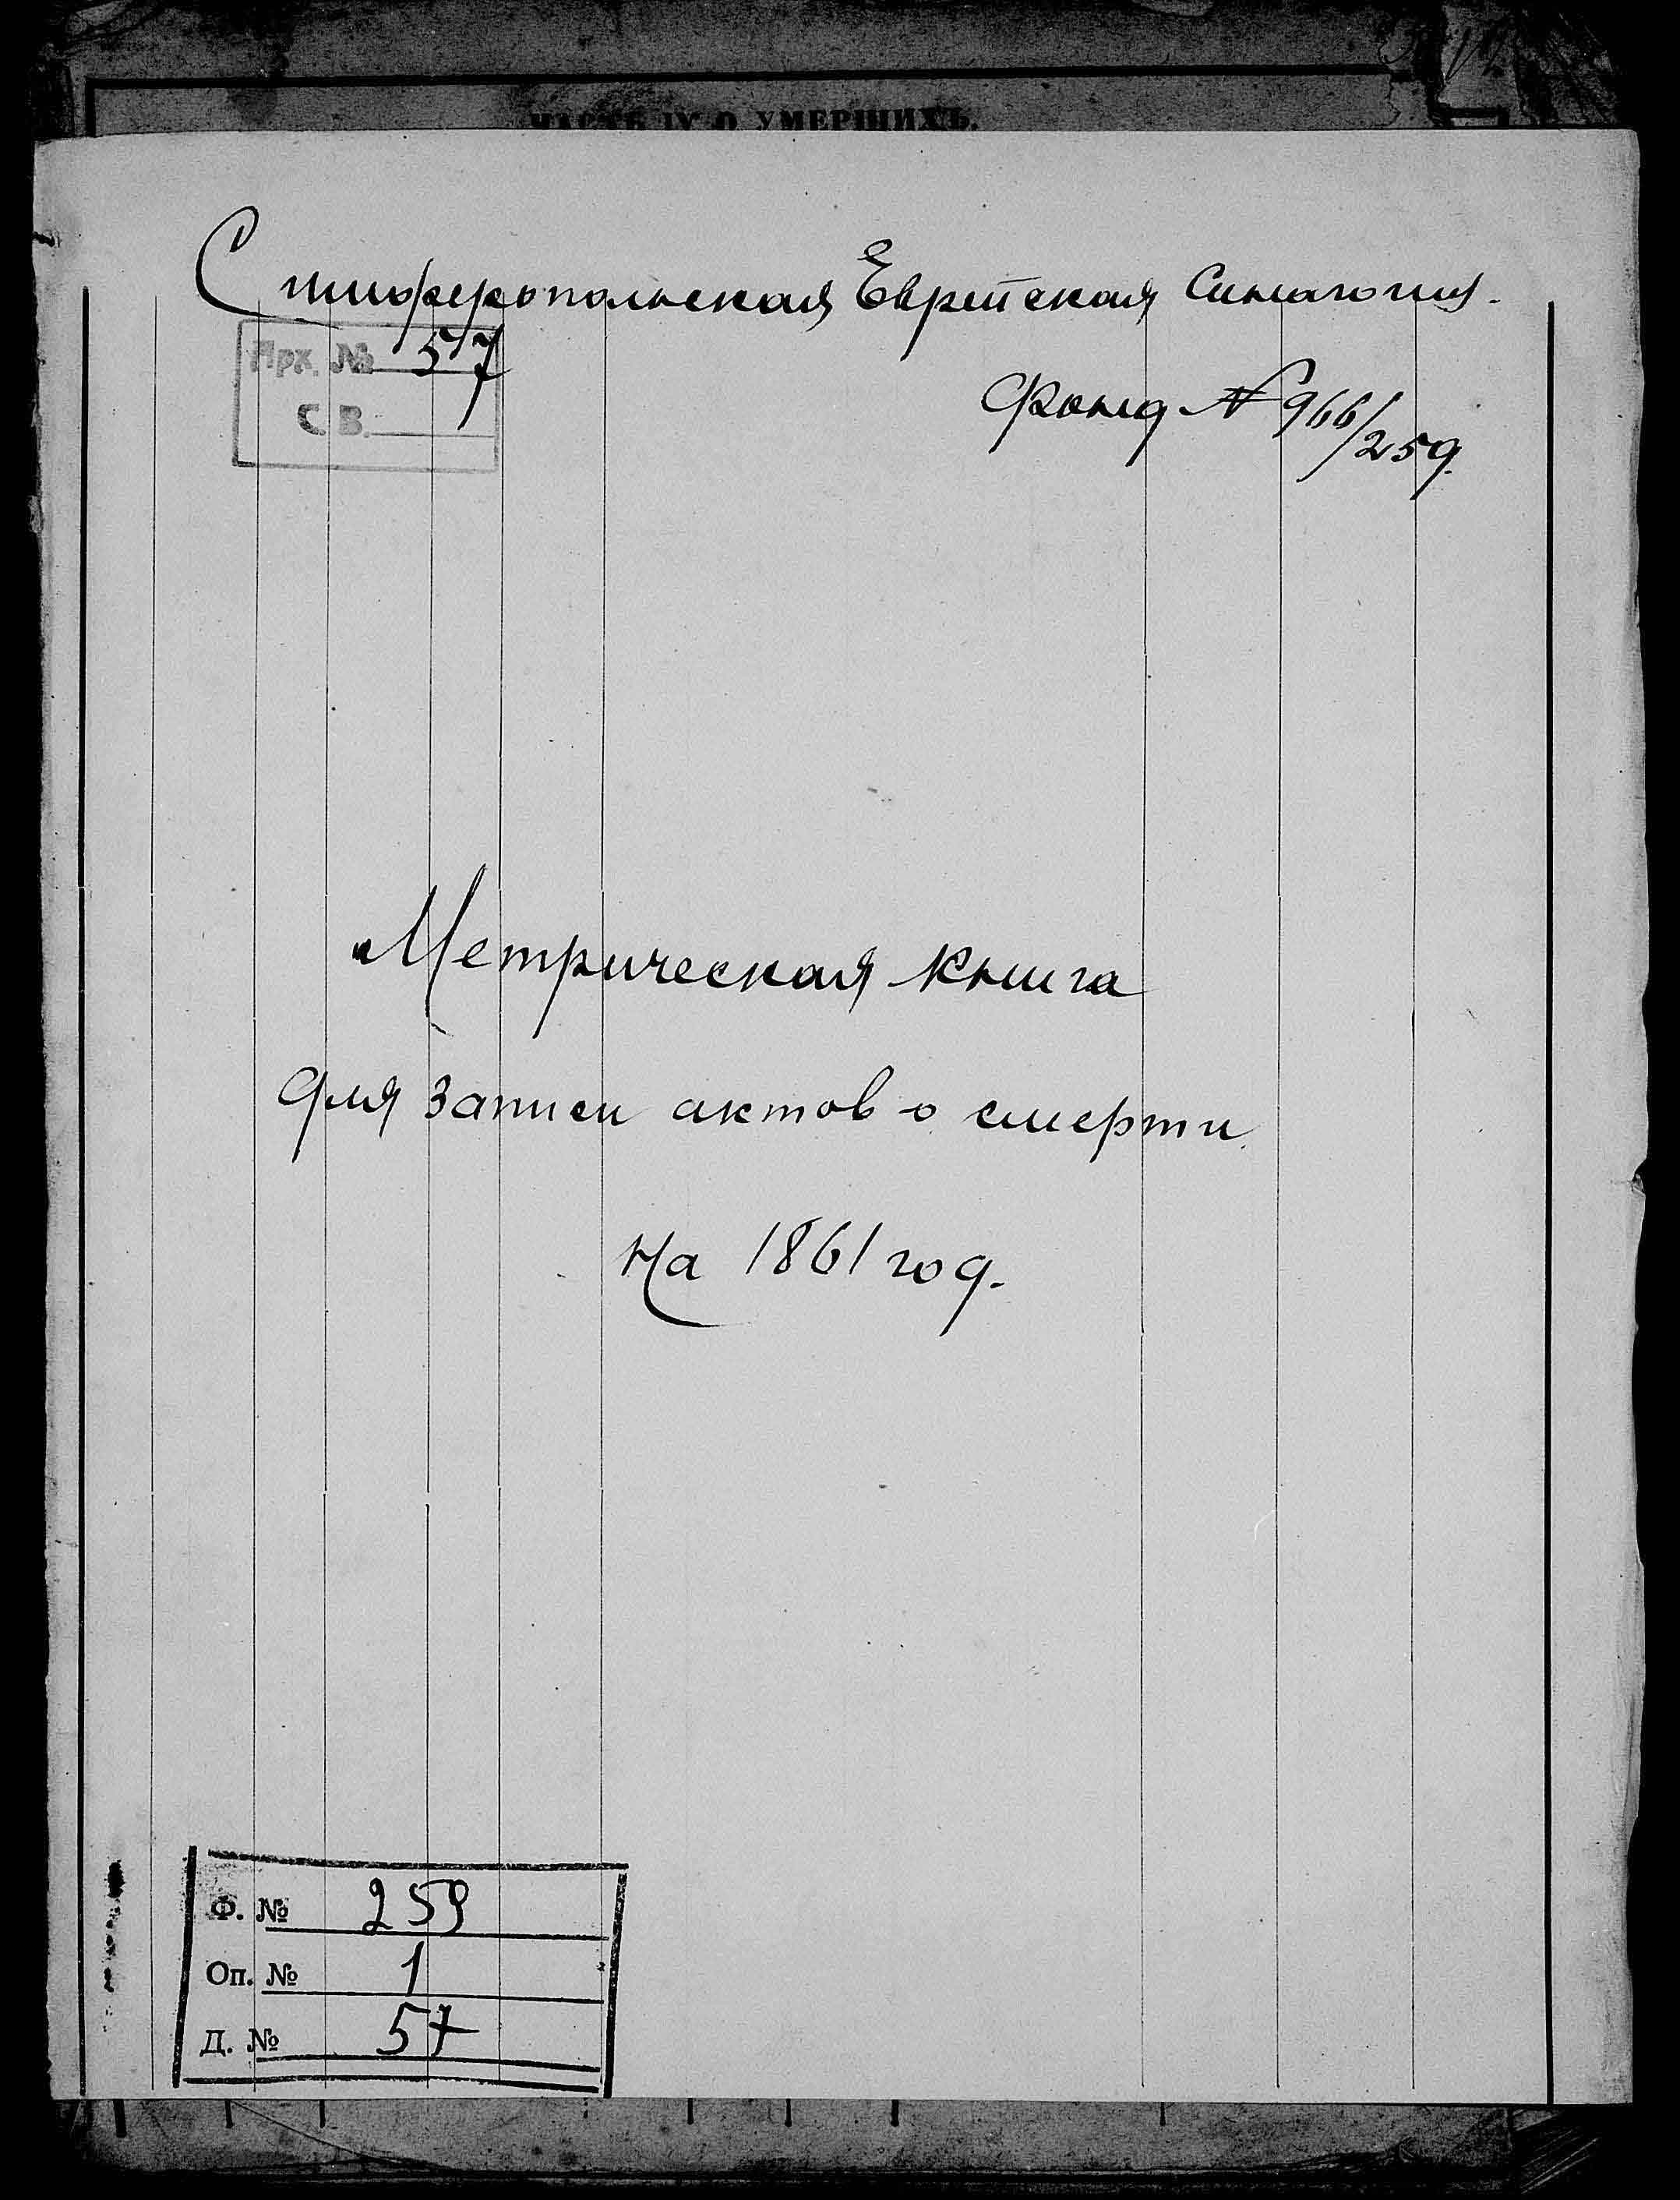 ЧАСТЬ IV О УМЕРШИХЪ.
Симферопольская Еврейская Синагогия.
Арх. № 57
С В.
Фонд № 966/259.
Метрическая книга
для записи актов о смерти
на 1861 год.
Ф. № 259
Оп. № 1
Д. № 57